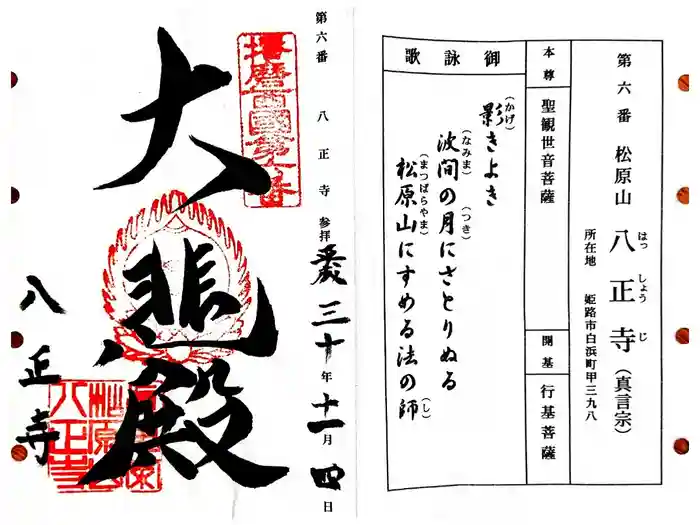 第六番 松原山 八正寺(真言宗)
はっしょうじ
所在地 姫路市白浜町甲三九八
本尊 聖観世音菩薩
開基 行基菩薩
御詠歌
影きよき
(かげ)
波間の月にさとりぬる
(なみま) (つき)
松原山にすめる法の師
(まつばらやま) (し)
第六番 八正寺 参拝 平成三十年十一月四日
播磨西國第六番
大悲殿
八正寺